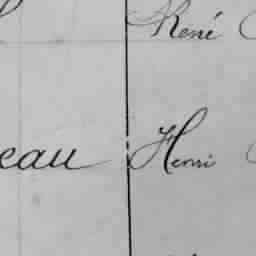 René
eau Henri